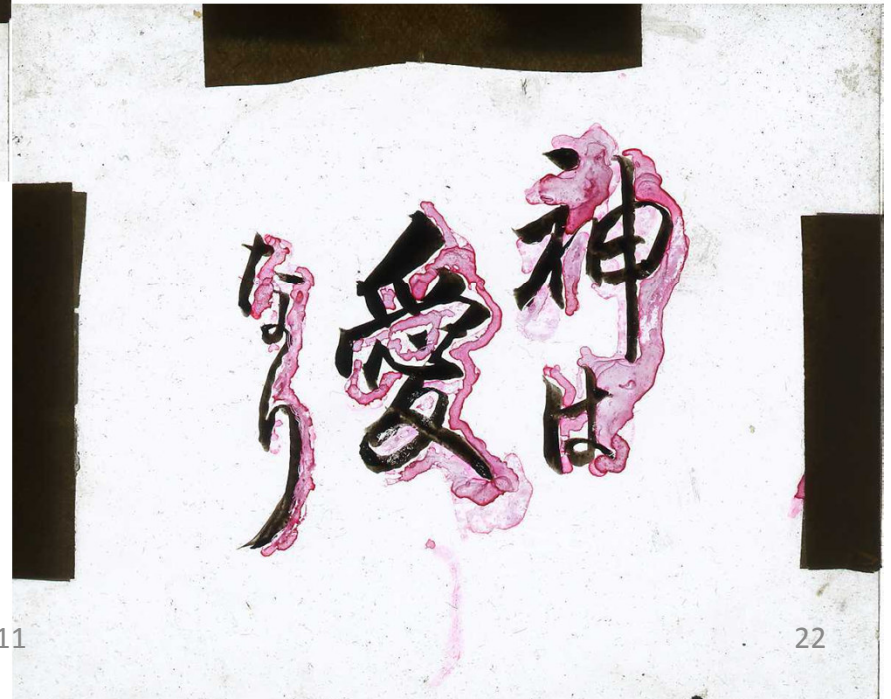 神は
愛
なり
11
22